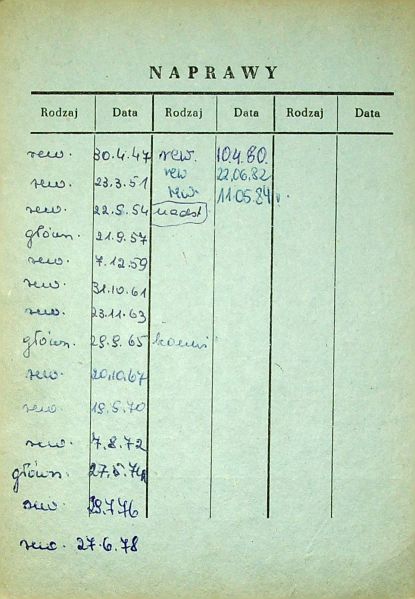 NAPRAWY
Rodzaj Data Rodzaj Data Rodzaj Data
rew. 30.4.47 rew. 10.4.80.
rew. 23.3.51 rew 22.06.82
rew. 22.9.54 rew. 11.05.84 r.
główn. 21.9.57 nadst
rew. 7.12.59
rew. 31.10.61
rew. 23.11.63
główn. 29.9.65
rew. 20.10.67
rew. 19.9.70
rew. 7.8.72
główn. 27.5.74
rew. 29.7.76
rew. 27.6.78